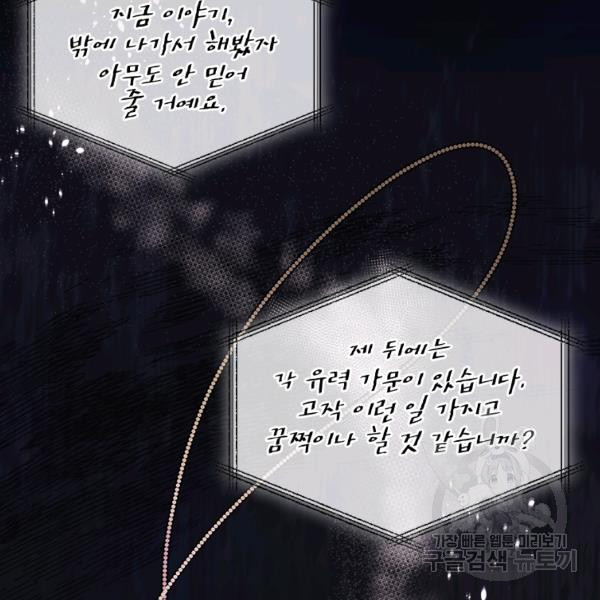 지금 이야기,
밖에 나가서 해봤자
아무도 안 믿어
줄 거예요.
제 뒤에는
각 유력 가문이 있습니다.
고작 이런 일 가지고
꿈쩍이나 할 것 같습니까?
가장 빠른 웹툰 미리보기
구글검색 뉴토끼